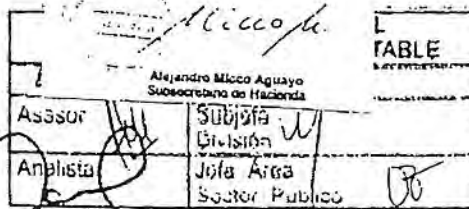 Micco A.
L
TABLE
Alejandro Micco Aguayo
Subsecretario de Hacienda
Asesor
Subjefa
División
Analista
Jefa Area
Sector Publico